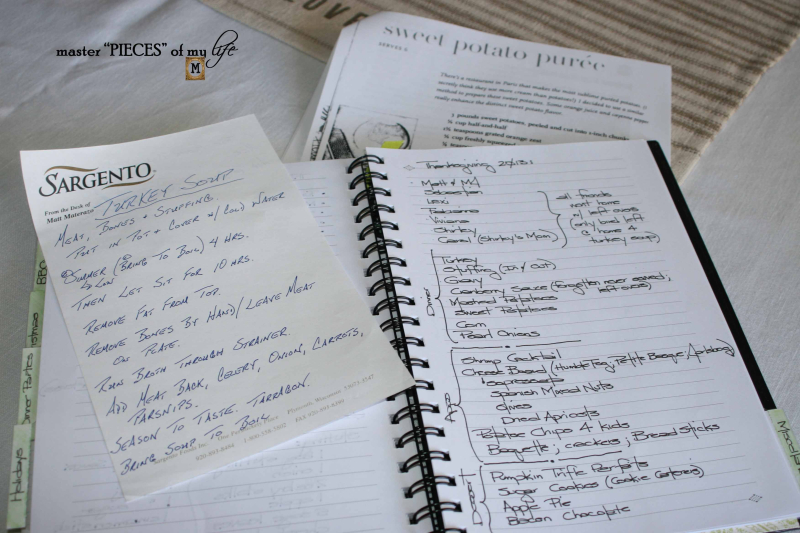 master "PIECES" of my life
M
LOVE
sweet potato purée
SERVES 6
There's a restaurant in Paris that makes the most
method to prepare these sweet potatoes. Some orange juice and
really enhance the sweet potato flavor.
pounds sweet potatoes, peeled and cut into 1-inch
cup half-and-half
teaspoons grated orange zest
cup freshly squeezed
SARGENTO
From the Desk of
Matt Materazo
TURKEY SOUP
MEAT, BONES + STUFFING.
PUT IN POT + COVER W/ COLD WATER
SIMMER (BRING TO BOIL) 4 HRS.
LOW
THEN LET SIT FOR 10 HRS.
REMOVE FAT FROM TOP.
REMOVE BONES BY HAND/LEAVE MEAT
ON PLATE.
RUN BROTH THROUGH STRAINER
ADD MEAT BACK, CELERY, ONION, CARROTS,
PARSNIPS.
SEASON TO TASTE. TARRAGON.
BRING SOUP TO BOIL
Sargento Foods Inc. Plymouth, Wisconsin 53073-2547
Thanksgiving 2013!
Matt & M
Sebastian
Lexi
Fabianna
Viviana
Shirley
Carol (Shirley's Mom)
all friends
went home
w/ left overs
(only bad left
@ home 4
turkey soup)
Dinner
Turkey
Stuffing (IN & out)
Gravy
Cranberry Sauce (forgotten never served;
left overs)
Mashed Potatoes
Sweet Potatoes
Corn
Pearl Onions
App
Shrimp Cocktail
Cheese Board (Humble Fog, Petite Basque
Spanish Mixed Nuts
Olives
Dried Apricots
Potato Chips 4 kids
Baquette, crackers, Bread Sticks
Dessert
Pumpkin Trifle Parfaits
Sugar Cookies (Cookie Cutters)
Apple Pie
Bacon Chocolate
BBQ
Dinner Parties
Holidays